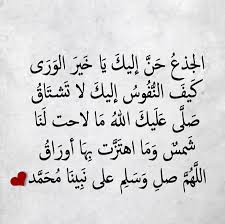 الجِذعُ حَنَّ إليكَ يا خَيرَ الوَرَى
كَيفَ النُّفُوسُ إليكَ لا تَشتَاقُ
صَلَّى عَلَيكَ اللهُ مَا لاحت لَنَا
شَمسٌ وَمَا اهتَزَّت بِهَا أورَاقُ
اللَّهُمَّ صلِ وَسَلِم على نَبِينَا مُحَمَّد